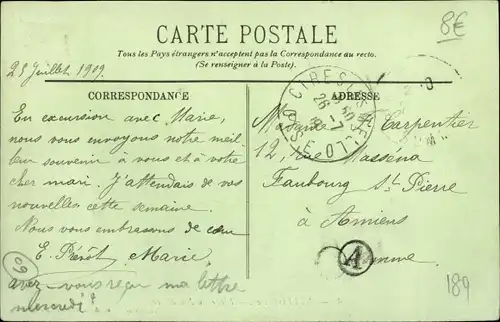 CARTE POSTALE
8€
Tous les Pays étrangers n'acceptent pas la Correspondance au recto.
(Se renseigner à la Poste).
25 Juillet 1909.
CORRESPONDANCE
En excursion avec Marie,
nous vous envoyons notre meil-
leur souvenir à vous et à votre
cher mari. J'attendais de vos
nouvelles cette semaine.
Nous vous embrassons de cœur
E. Marie.
avez-vous reçu ma lettre
mercredi?
09
ADRESSE
CIRES
OISE
26
Madame Carpentier
12, rue Massena
Faubourg St Pierre
à Amiens
Somme
A
189